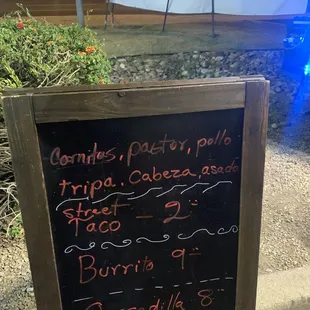 Carnitas, pastor, pollo
tripa, Cabeza, asada
street
Taco - 2
Burrito 9
Quesadilla 8